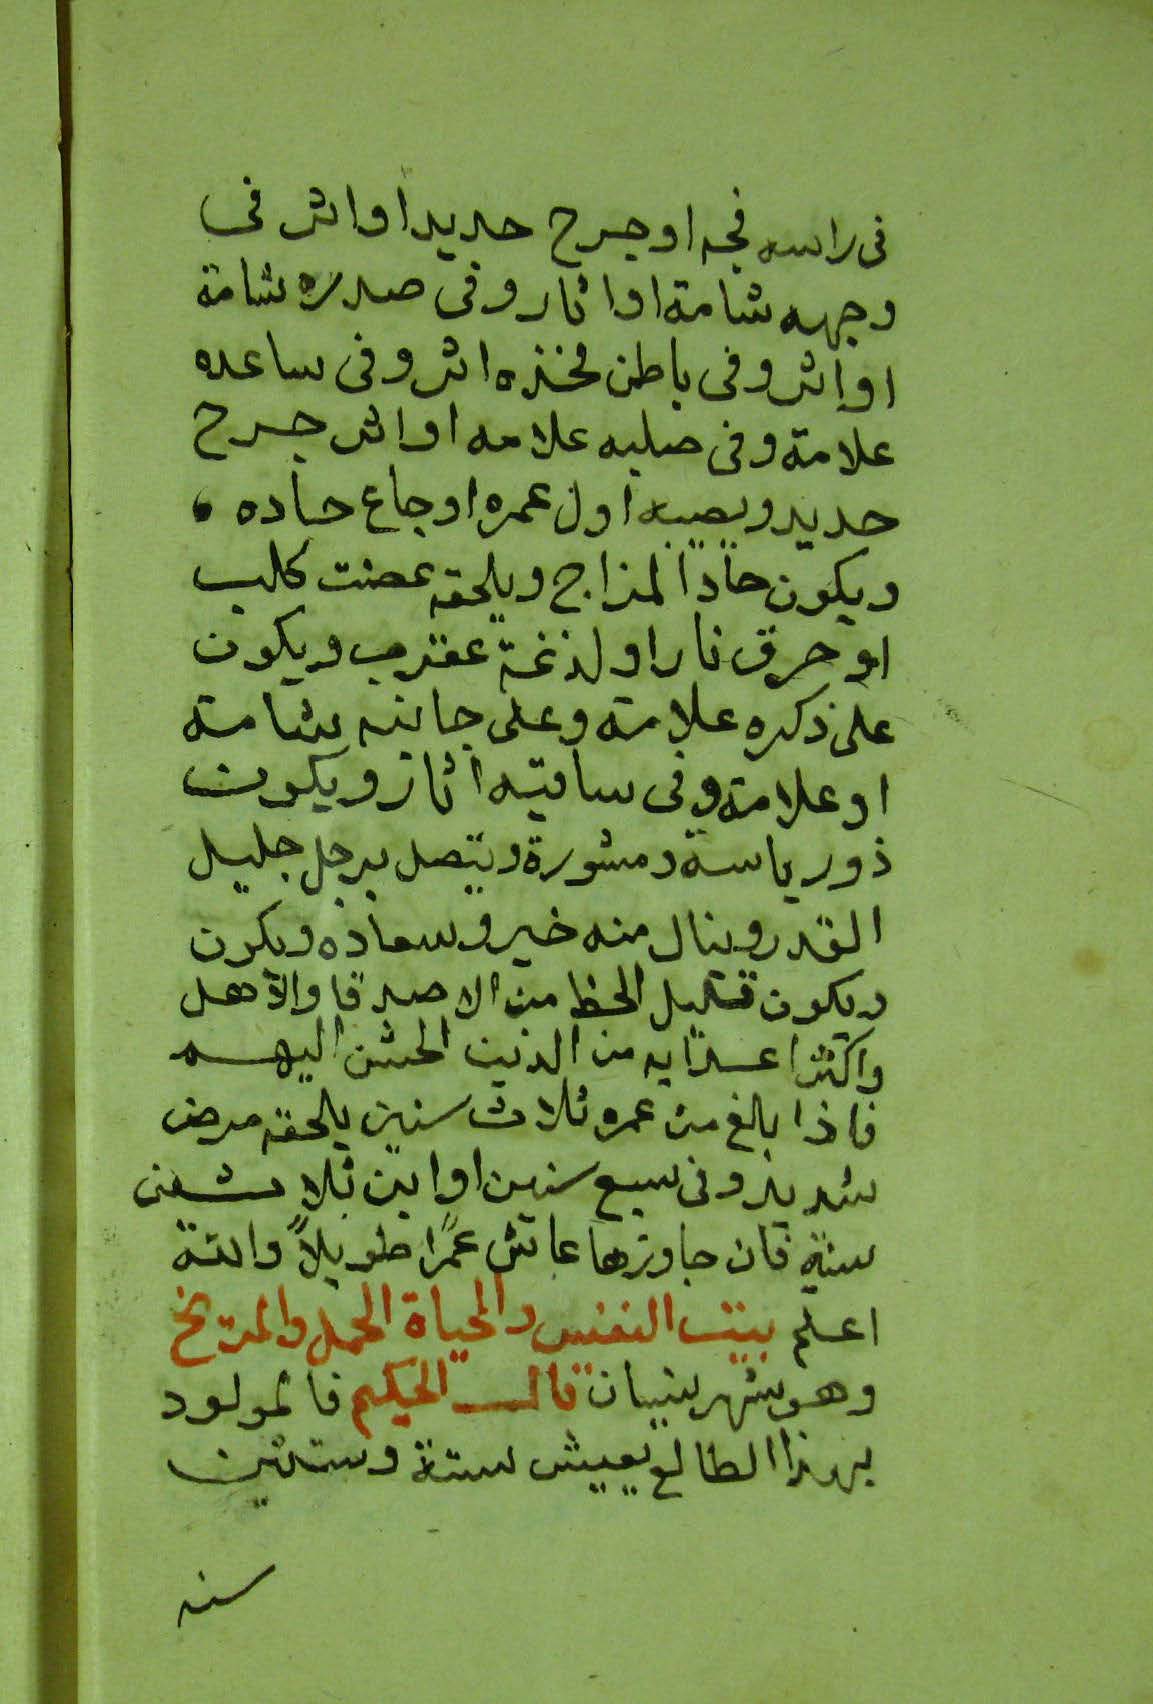 فى راسه فجه او جرح حديد او اثر فى
وجهه شامة او اثار وفى صدره شامة
او اثر وفى باطن فخذه اثر وفى ساعده
علامة وفى صلبه علامه او اثر جرح
حديد ويصيبه اول عمره اوجاع حاده ،
ويكون حادّا لمزاج ويلحقه عضت كلب
او حرق نار او لذغة عقرب ويكون
على ذكره علامة وعلى جانبه شامة
او علامة وفى ساقيه اثار ويكون
ذو رياسة ومشورة ويتصل برجل جليل
القدر وينال منه خير وسعاده ويكون
ويكون قليل الحظ من الاصدقا والاهل
واكثر اعدايه من الذين احسن اليهم
فاذا بالغ من عمره ثلاث سنين يلحقه مرض
شديد وفى سبع سنين او ابن ثلاث
سنة فان جاوزها عاش عمرًا طويلاً والله
اعلم بيت النفس والحياة الحمل والمريخ
وهو شهر نيسان قال الحكيم فالمولود
بهذا الطالع يعيش ستة وستين
سنه